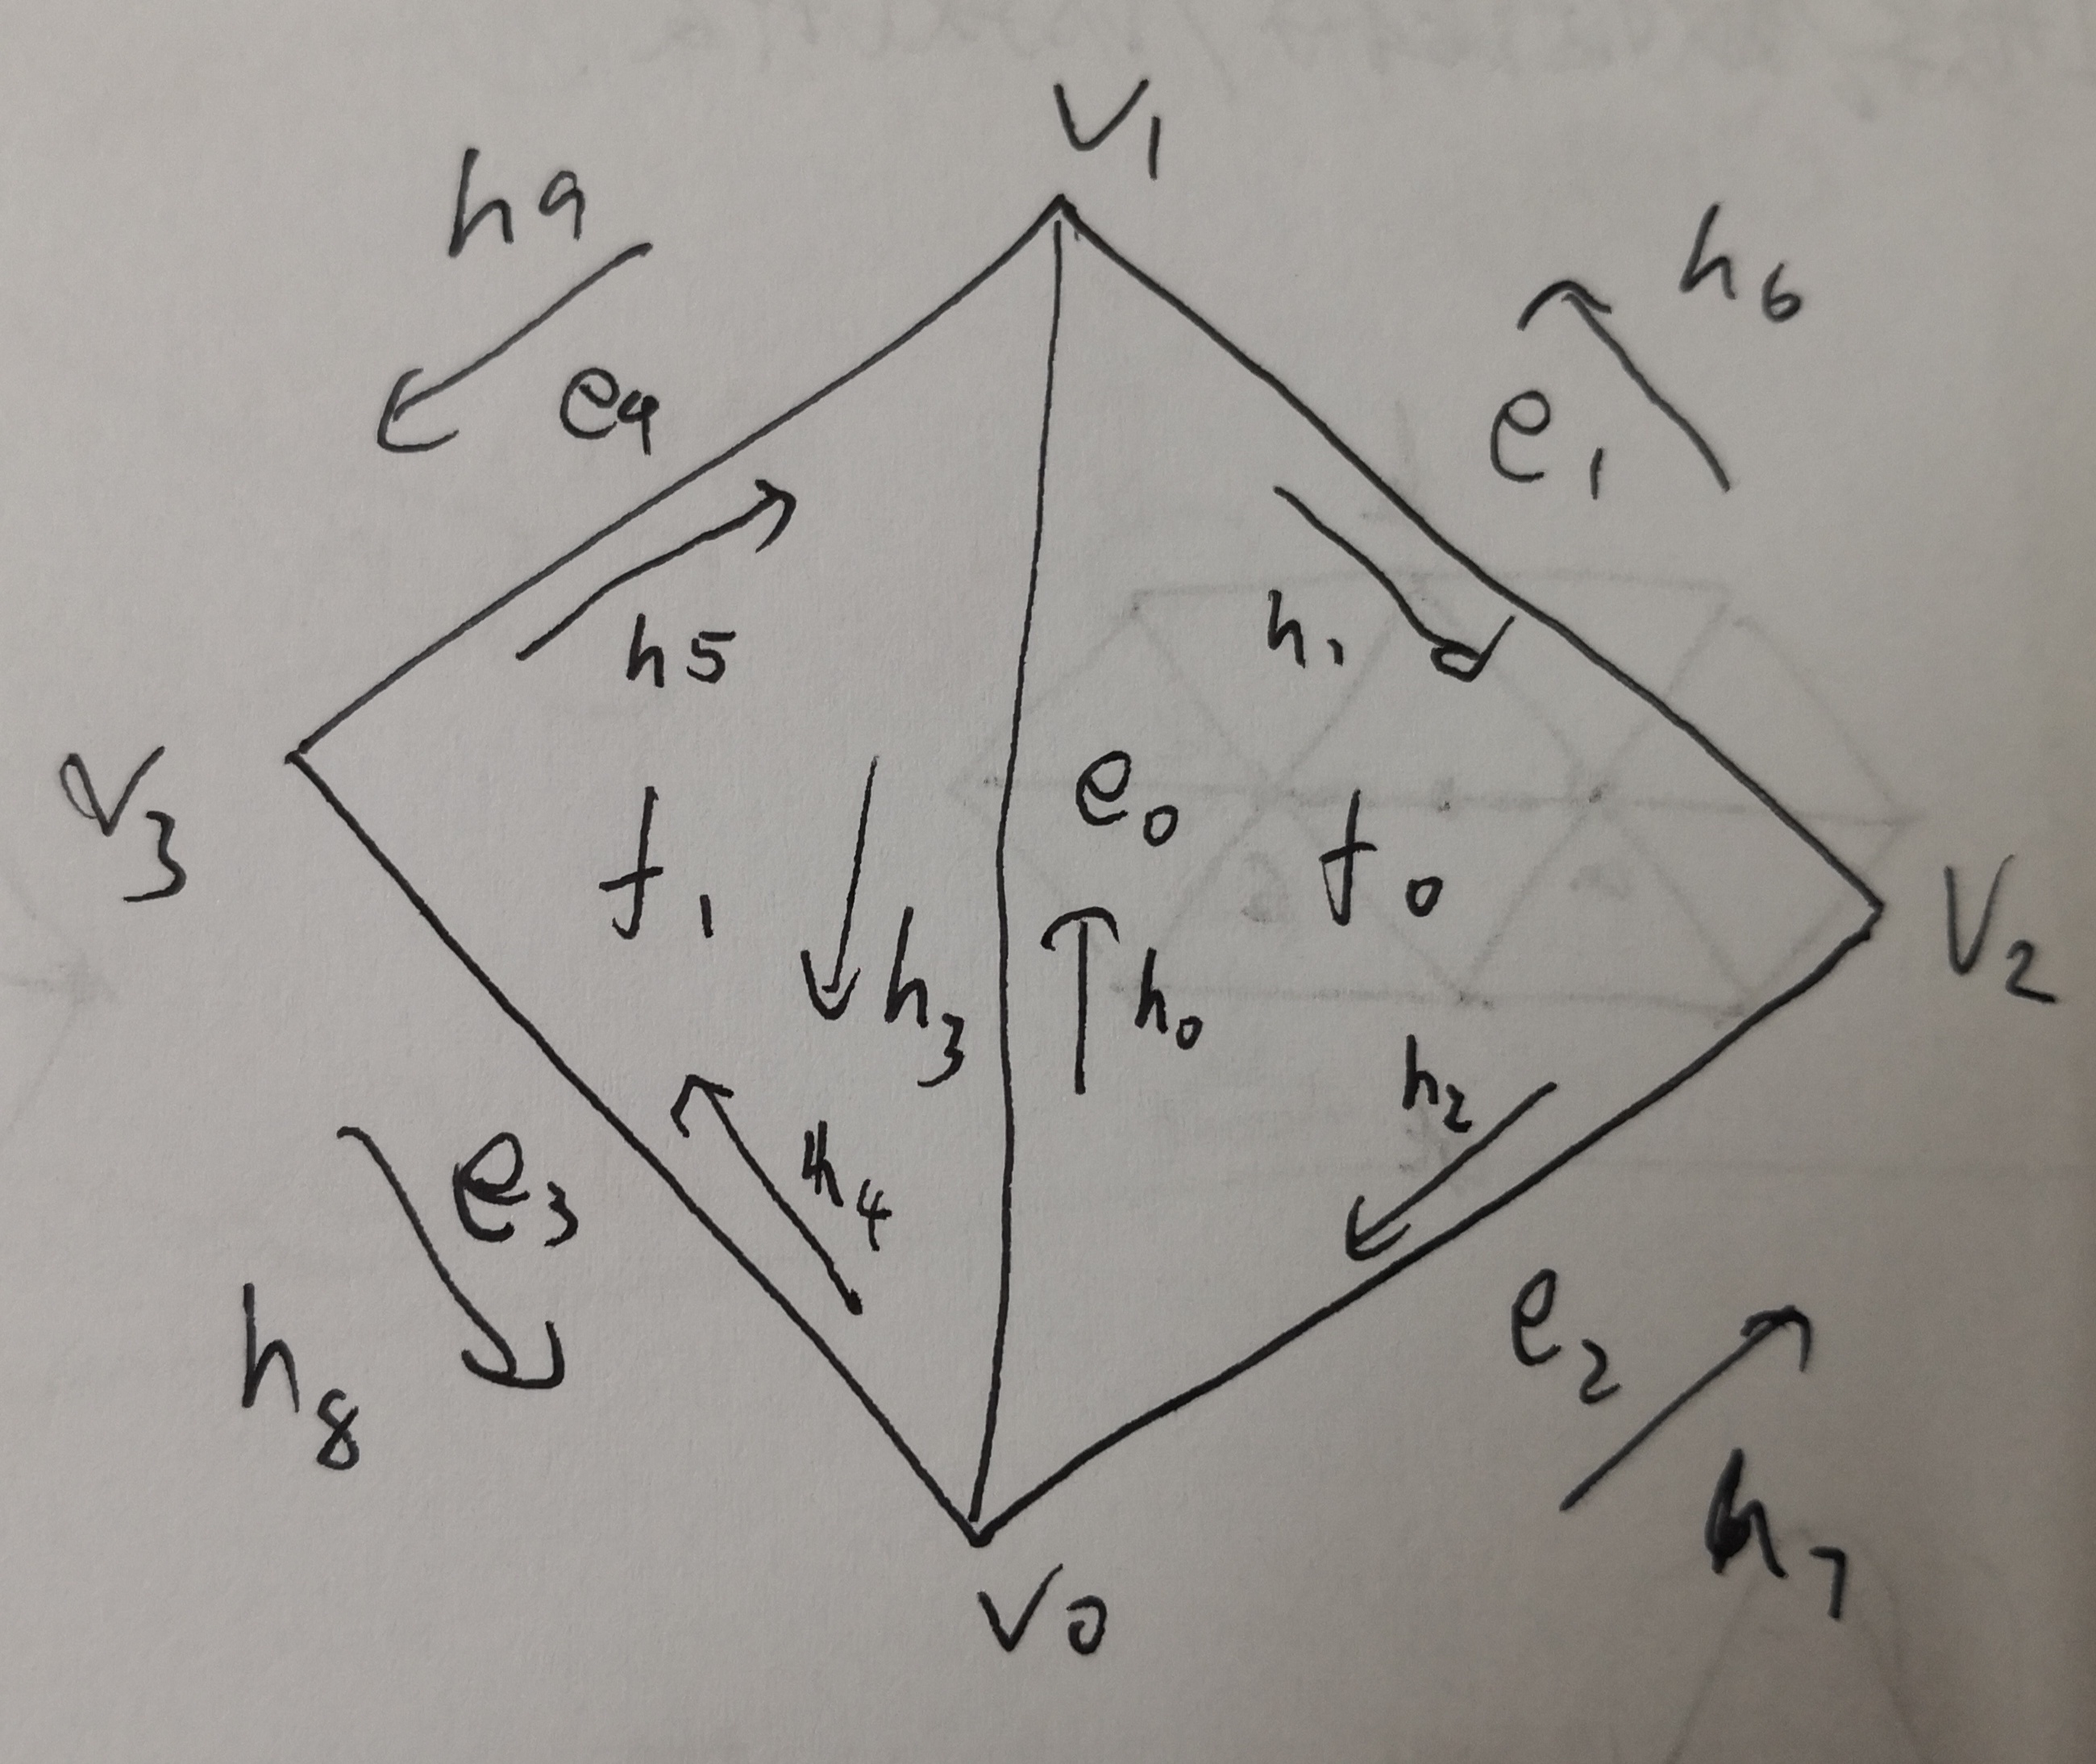 V1
h9
h6
e4
e1
h5
h1
V3
e0
f1
f0
V2
h3
h0
h2
h4
e3
e2
h8
h7
V0